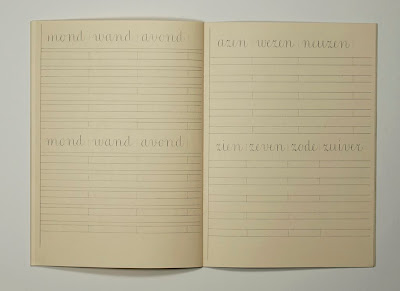 mond wand avond
mond wand avond
azen wezen neuzen
zien zeven zode zuiver